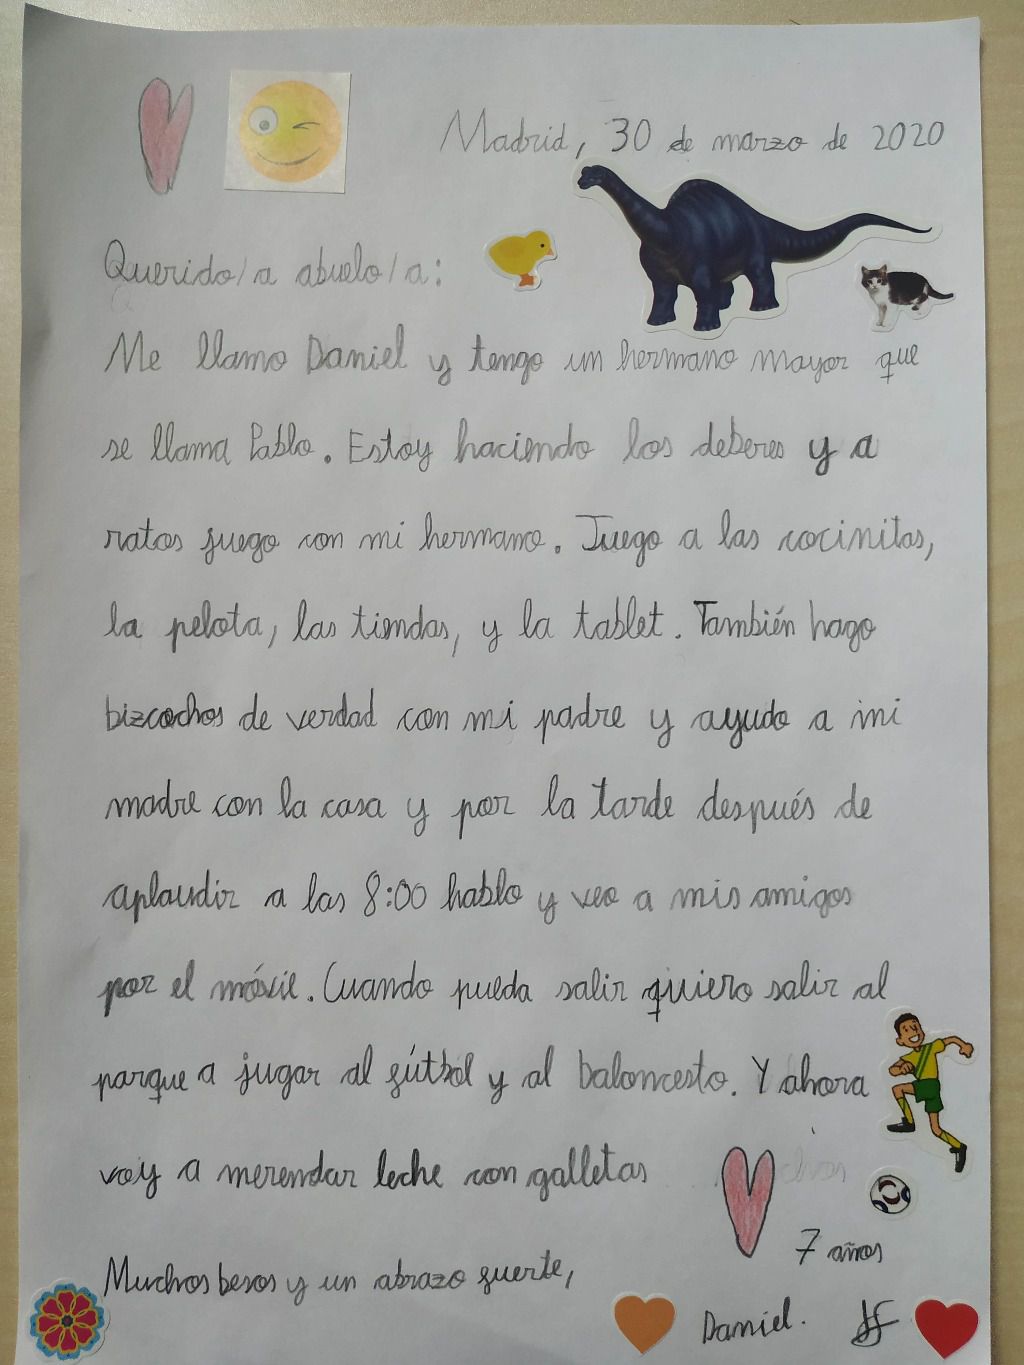 Madrid, 30 de marzo de 2020
Querido/a abuelo/a:
Me llamo Daniel y tengo un hermano mayor que
se llama Pablo. Estoy haciendo los deberes y a
ratos juego con mi hermano. Juego a las cocinitas,
la pelota, las tiendas, y la tablet. También hago
bizcochos de verdad con mi padre y ayudo a mi
madre con la casa y por la tarde después de
aplaudir a las 8:00 hablo y veo a mis amigos
por el móvil. Cuando pueda salir quiero salir al
parque a jugar al fútbol y al baloncesto. Y ahora
voy a merendar leche con galletas
Muchos besos y un abrazo fuerte,
7 años
Daniel.